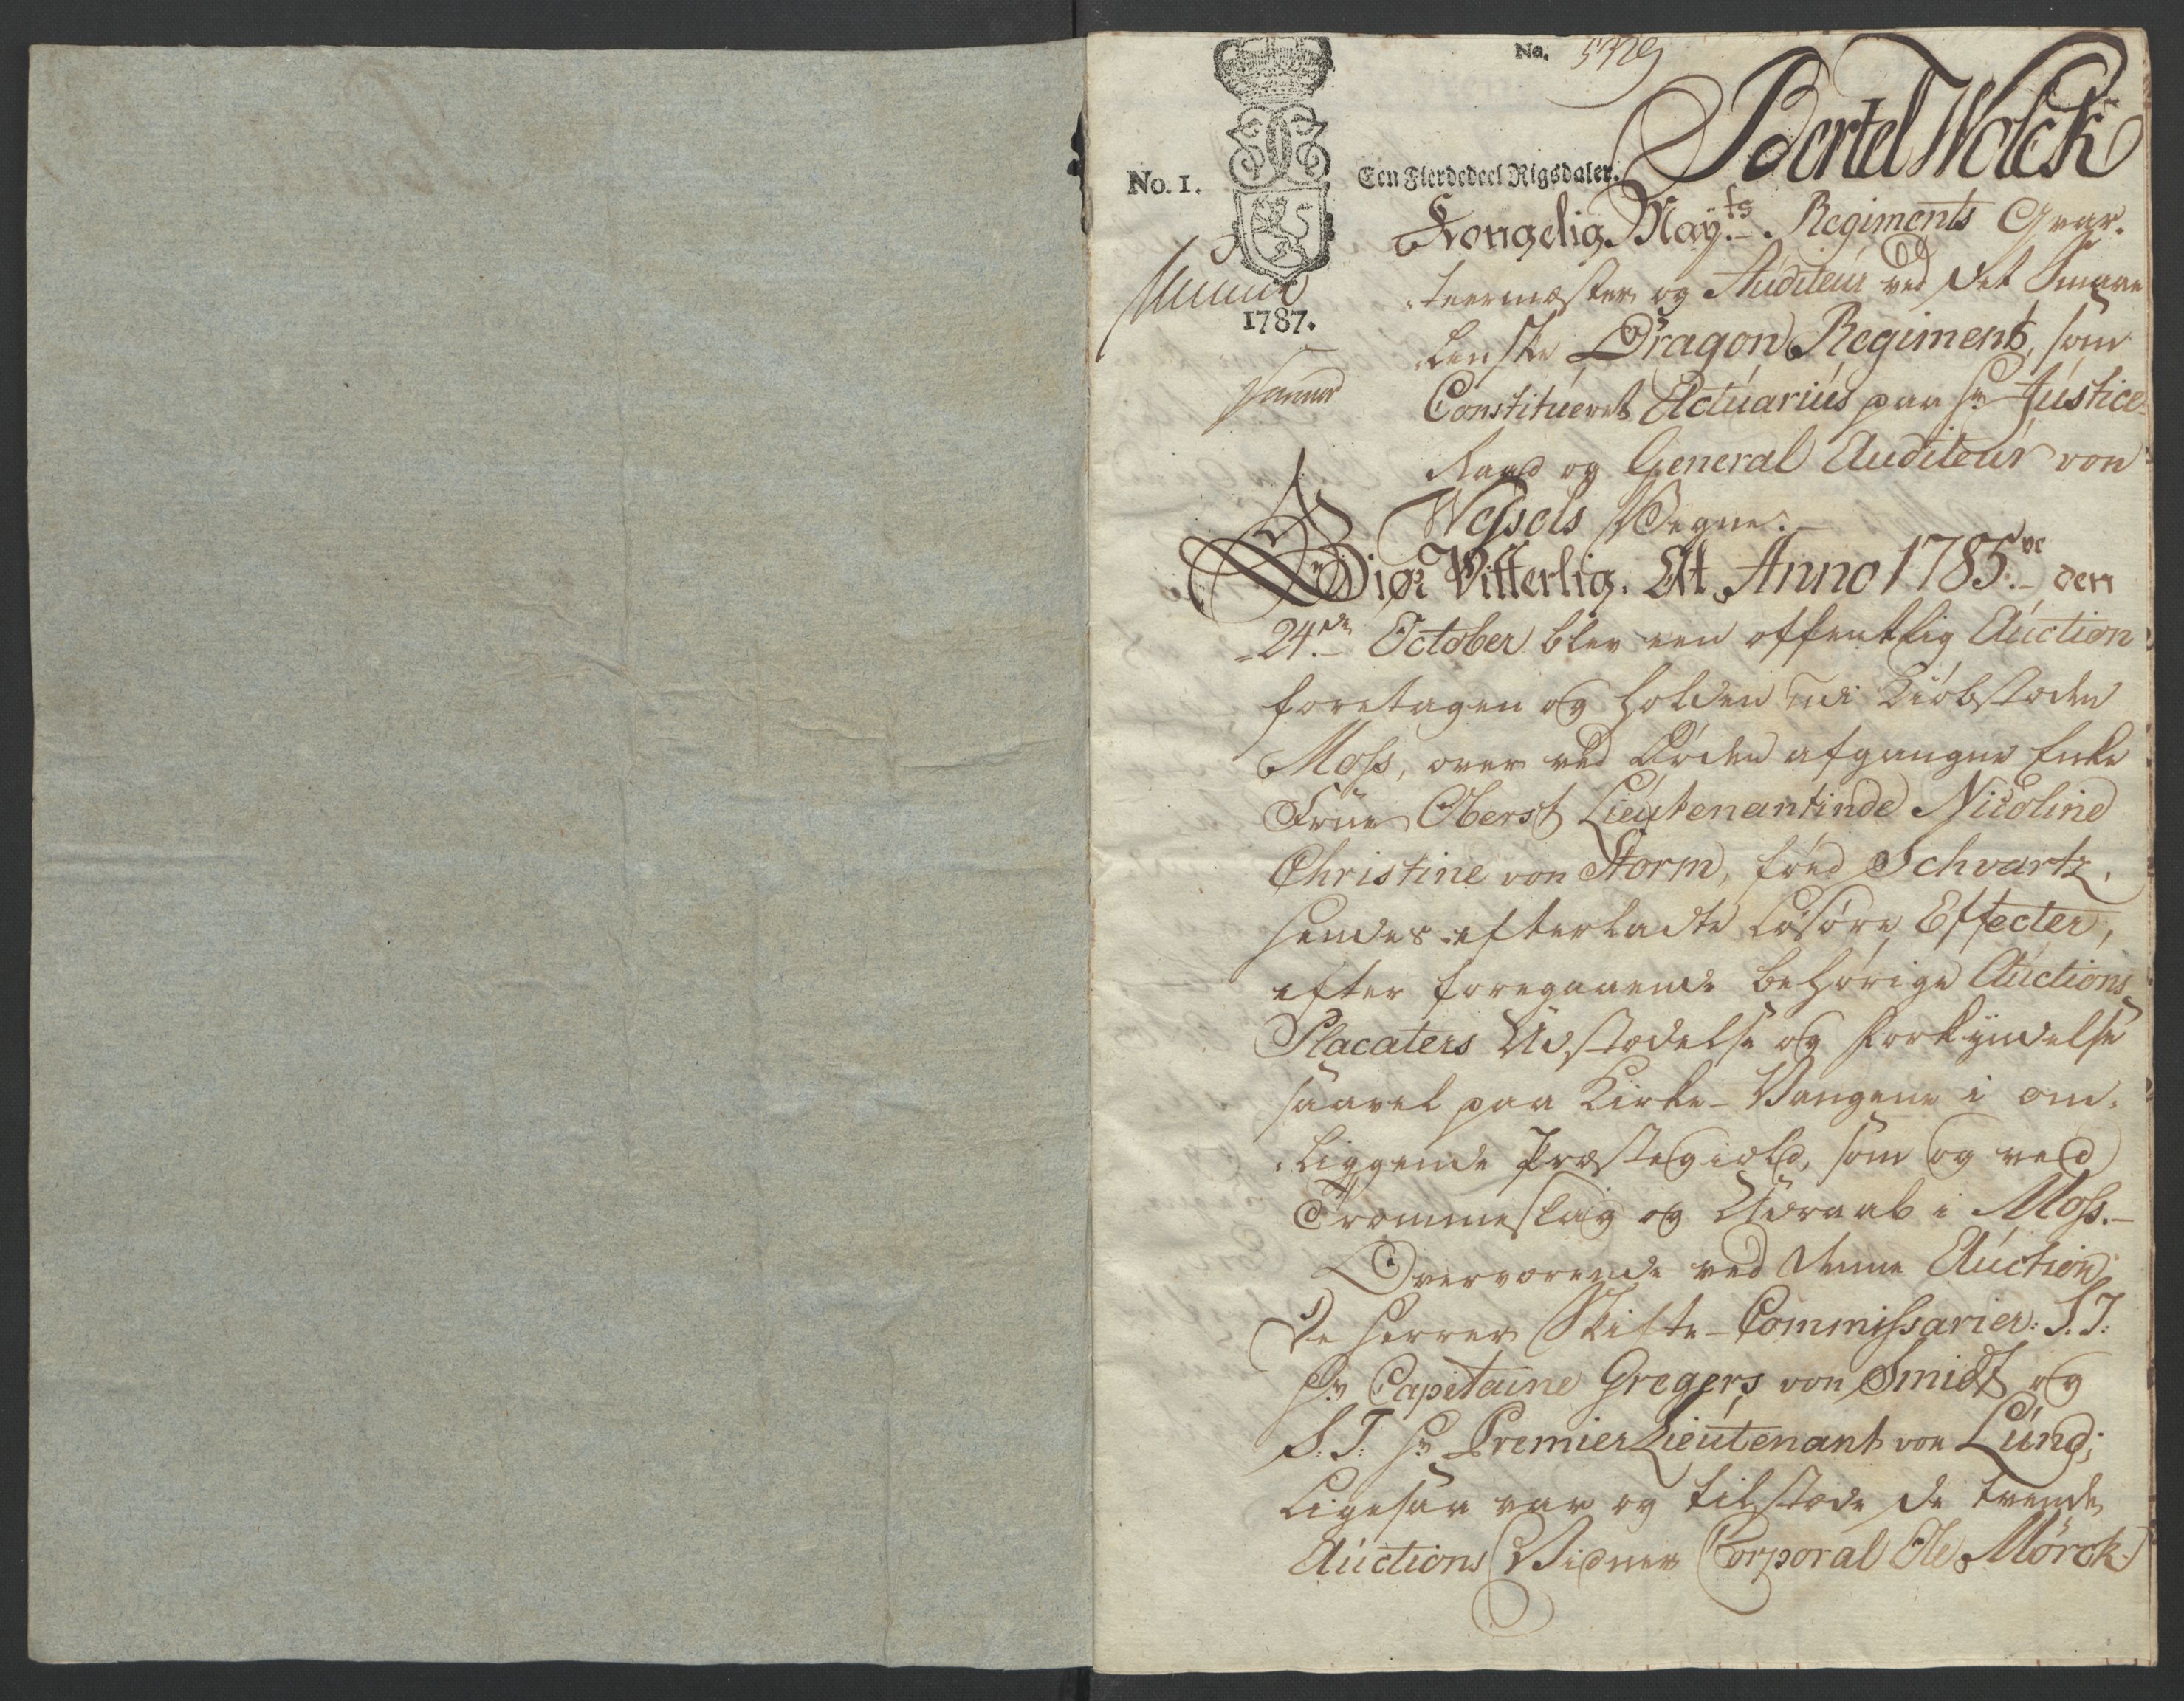 No. 5729
No. 1.
Een Fierdedeel Rigsdaler.
1787.
Bertel Wolck
Kongelig Mayts. Regiments Qvar-
teermester og Auditeur ved det Smaae
lenske Dragon Regiment, som
Constitueret Actuarius paa Hr Justice
Raad og General Auditeur von
Wessels Vegne.
Giør Vitterlig. At Anno 1785ve den
24de October blev een offentlig Auction
foretagen og holden udi Kiøbstæden
Moss, over ved Døden afgangne Enke
Frue Oberst Lieutenantinde Nicoline
Christine von Storm, fød Schvartz,
hendes efterladte Løsøre Effecter,
efter foregaaende behørige Auctions
Placaters Udstædelse og Forkyndelse
saavel paa Kirke-Vangene i om-
liggende Præstegield, som og ved
Trommeslag og Udraab i Moss.
Overværende ved denne Auction
De Herrer Skifte-Commissarier: S. T.
Hr Capitaine Gregers von Smidt og
S. T. Hr Premier Lieutenant von Lund;
Ligesaa var og tilstæde de tvende
Auctions Vidner Corporal Ole Mörck